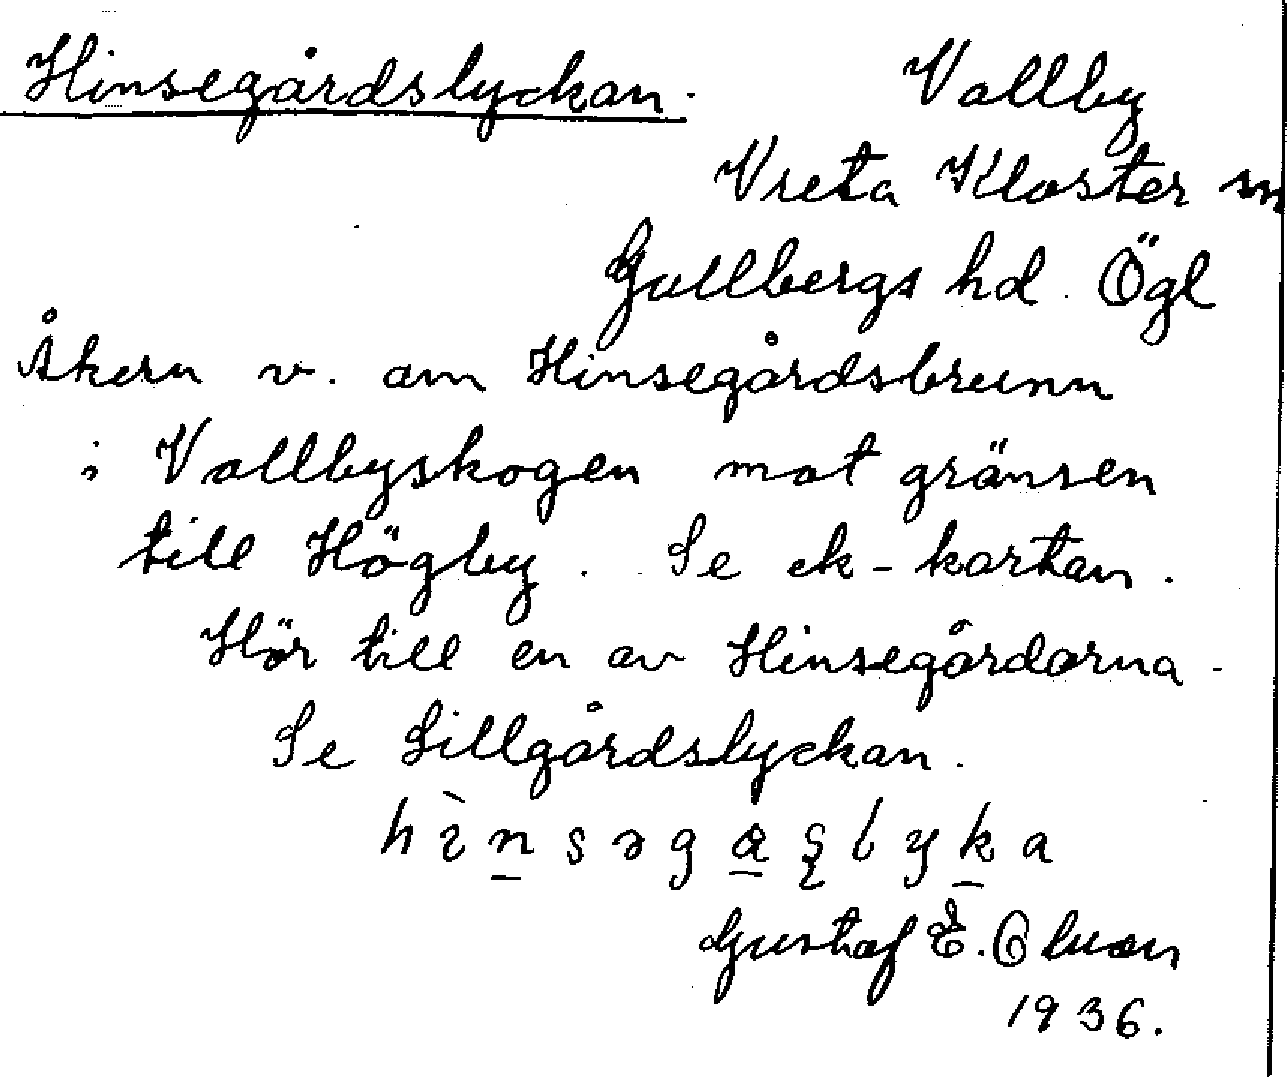 Hinsegårdslyckan. Vallby
Vreta Kloster sn
Gullbergs hd. Ögl
Åkern v. om Hinsegårdsbrunn
i Vallbyskogen mot gränsen
till Högby. Se ek-kartan.
Hör till en av Hinsegårdarna.
Se Lillgårdslyckan.
Gustaf E. Olsson
1936.